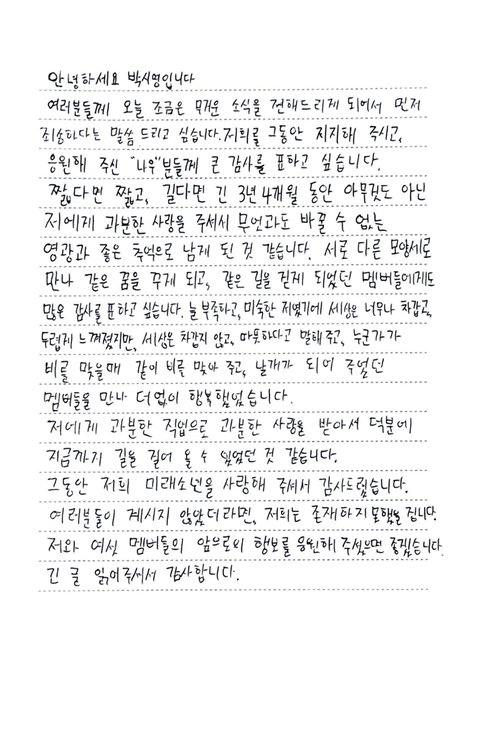 안녕하세요 박시영입니다
여러분들께 오늘 조금은 무거운 소식을 전해드리게 되어서 먼저
죄송하다는 말씀 드리고 싶습니다. 저희를 그동안 지지해 주시고,
응원해 주신 "나우"분들께 큰 감사를 표하고 싶습니다.
짧다면 짧고, 길다면 긴 3년 4개월 동안 아무것도 아닌
저에게 과분한 사랑을 주셔서 무엇과도 바꿀 수 없는
영광과 좋은 추억으로 남게 된 것 같습니다. 서로 다른 모양새로
만나 같은 꿈을 꾸게 되고, 같은 길을 걷게 되었던 멤버들에게도
많은 감사를 표하고 싶습니다. 늘 부족하고, 미숙한 저였기에 세상은 너무나 차갑고,
두렵게 느껴졌지만, 세상은 차갑지 않고, 따뜻하다고 말해주고, 누군가가
비를 맞을때 같이 비를 맞아 주고, 날개가 되어 주었던
멤버들을 만나 더없이 행복했었습니다.
저에게 과분한 직업으로 과분한 사랑을 받아서 덕분에
지금까지 길을 걸어 올 수 있었던 것 같습니다.
그동안 저희 미래소년을 사랑해 주셔서 감사드렸습니다.
여러분들이 계시지 않았더라면, 저희는 존재하지 못했을 겁니다.
저와 여섯 멤버들의 앞으로의 행보를 응원해 주셨으면 좋겠습니다.
긴 글 읽어주셔서 감사합니다.